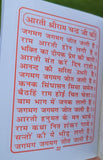 आरती श्रीराम चन्द्र जी की
जगमग जगमग जोत जली है।
राम आरती होन लगी है॥
भक्ति का दीपक प्रेम की बाती।
आरती संत करें दिन राती॥
आनन्द की सरिता उभरी है।
जगमग जगमग जोत जली है॥
कनक सिंघासन सिया समेता।
बैठहिं राम होइ चित चेता॥
वाम भाग में जनक लली है।
जगमग जगमग जोत जली है॥
आरती हनुमत के मन भावै।
राम कथा नित शंकर गावै॥
सन्तों की ये भीड़ लगी है।
जगमग जगमग जोत जली है॥